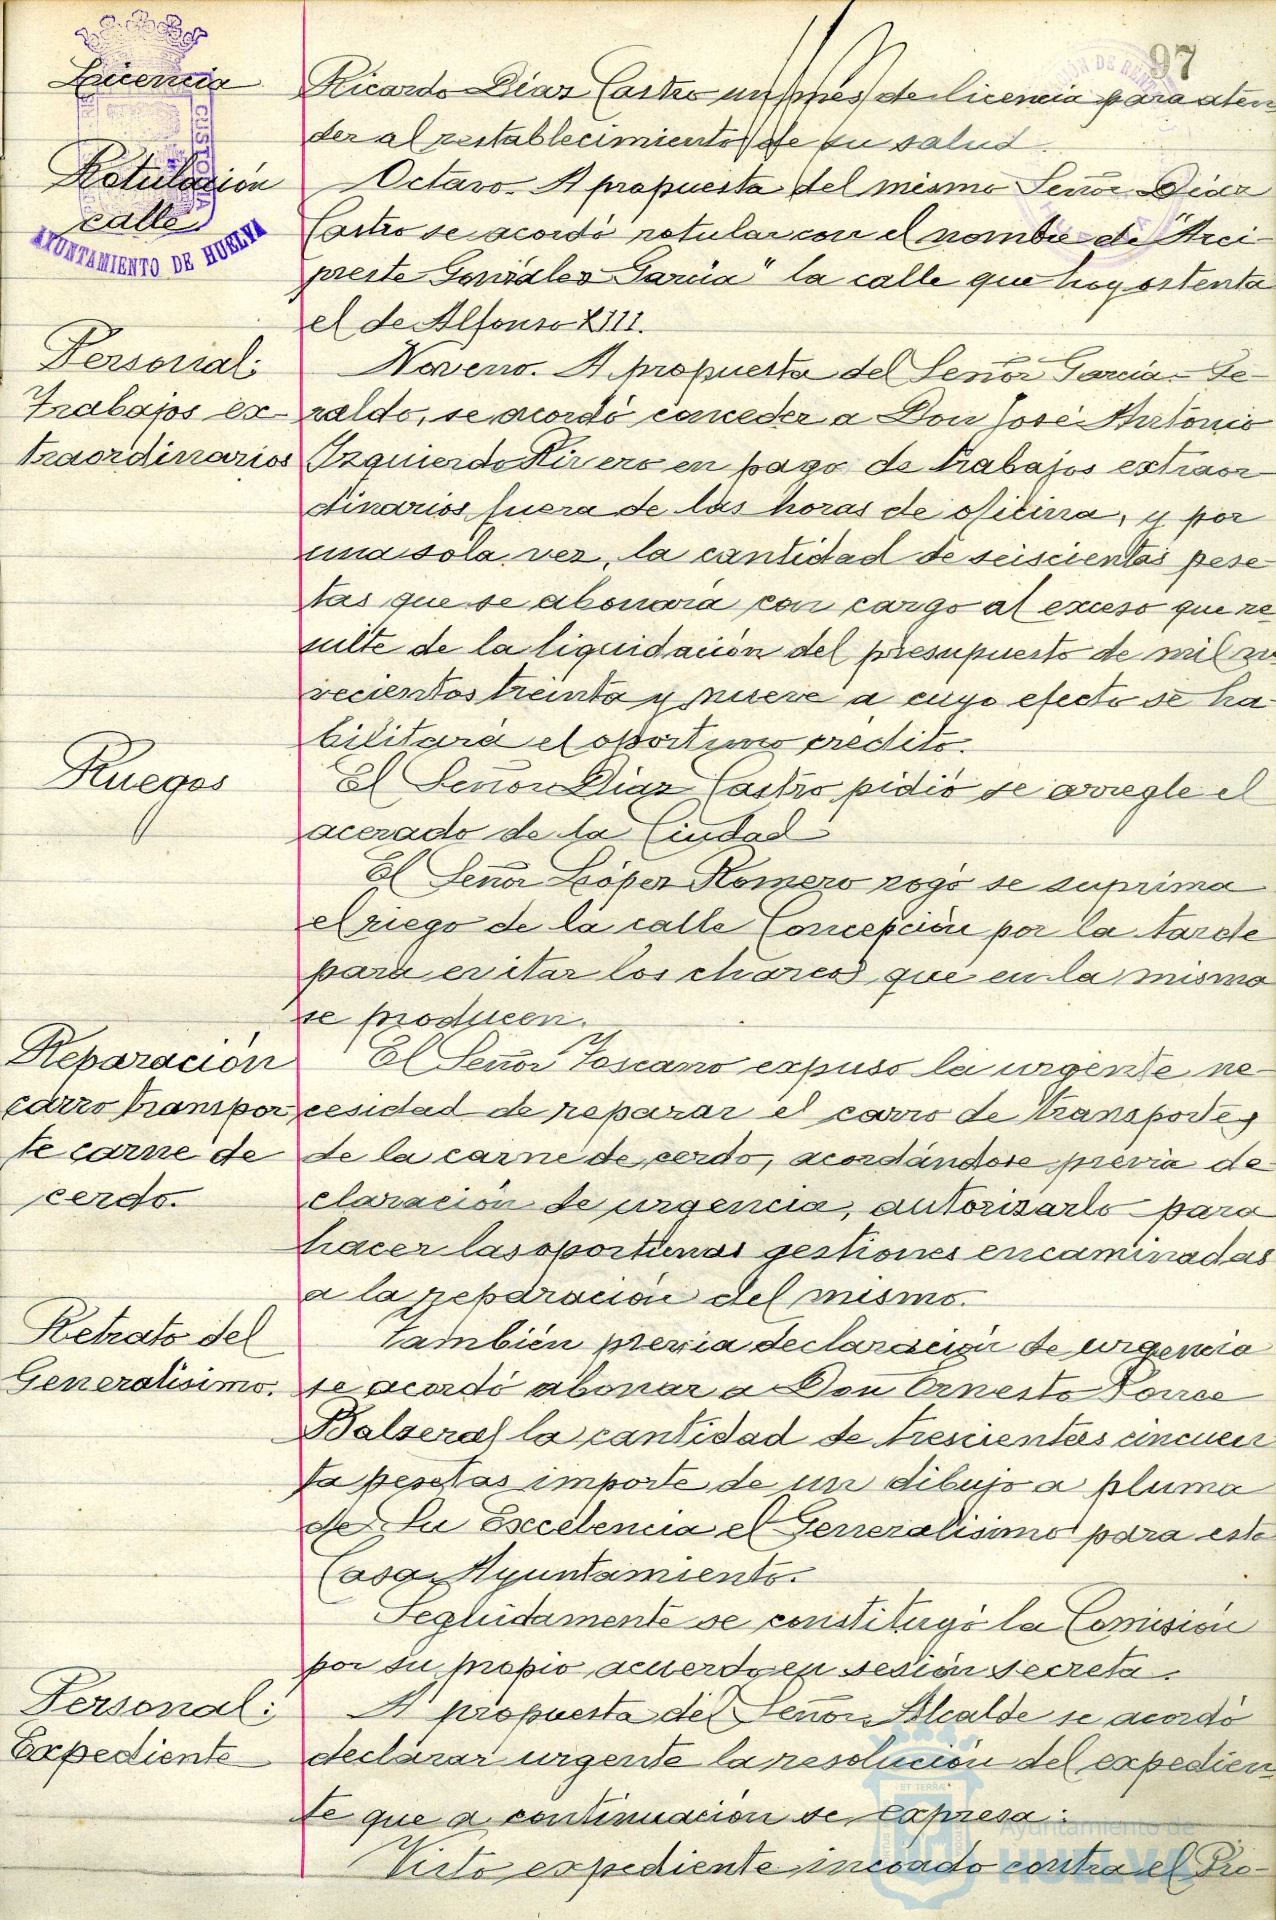 97
Licencia
Ricardo Díaz Castro un mes de licencia para aten
der al restablecimiento de su salud
Rotulación
calle
Octavo. A propuesta del mismo Señor Díaz
Castro se acordó rotular con el nombre de "Arci-
preste González García" la calle que hoy ostenta
el de Alfonso XIII.
Personal:
Trabajos ex-
traordinarios
Noveno. A propuesta del Señor García-Ge-
raldo, se acordó conceder a Don José Antonio
Izquierdo Rivero en pago de trabajos extraor
dinarios fuera de las horas de oficina, y por
una sola vez, la cantidad de seiscientas pese-
tas que se abonará con cargo al exceso que re
sulte de la liquidación del presupuesto de mil no
vecientos treinta y nueve a cuyo efecto se ha-
bilitará el oportuno crédito.
Ruegos
El Señor Díaz Castro pidió se arregle el
acerado de la Ciudad
El Señor López Romero rogó se suprima
el riego de la calle Concepción por la tarde
para evitar los charcos que en la misma
se producen.
Reparación
carro transpor
te carne de
cerdo.
El Señor Toscano expuso la urgente ne-
cesidad de reparar el carro de transporte,
de la carne de cerdo, acordándose previa de
claración de urgencia, autorizarlo para
hacer las oportunas gestiones encaminadas
a la reparación del mismo.
Retrato del
Generalísimo.
También previa declaración de urgencia
se acordó abonar a Don Ernesto Ponce
Balseral la cantidad de trescientas cincuen
ta pesetas importe de un dibujo a pluma
de Su Excelencia el Generalísimo para esta
Casa Ayuntamiento.
Seguidamente se constituyó la Comisión
por su propio acuerdo en sesión secreta.
Personal:
Expediente
A propuesta del Señor Alcalde se acordó
declarar urgente la resolución del expedien
te que a continuación se expresa:
Visto expediente incoado contra el Pro-
CUSTODIA
AYUNTAMIENTO DE HUELVA
ET TERRAE
Ayuntamiento de
HUELVA